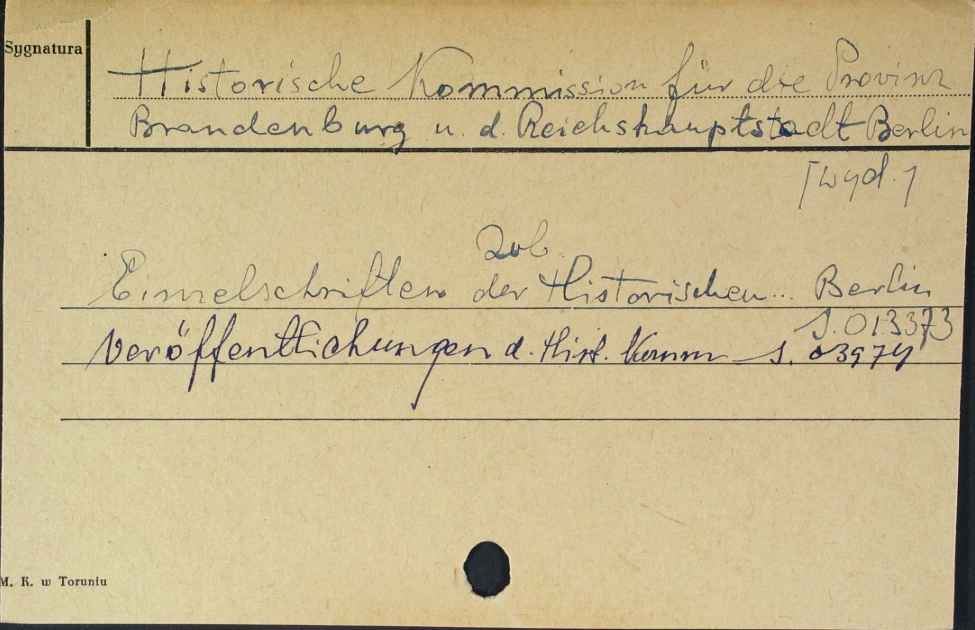 Sygnatura
Historische Kommission für die Provinz
Brandenburg u. d. Reichshauptstadt Berlin
[wyd.]
Zob.
Einzelschriften der Historischen... Berlin
S. 013373
Veröffentlichungen d. Hist. Komm S. 03974
M. K. w Toruniu